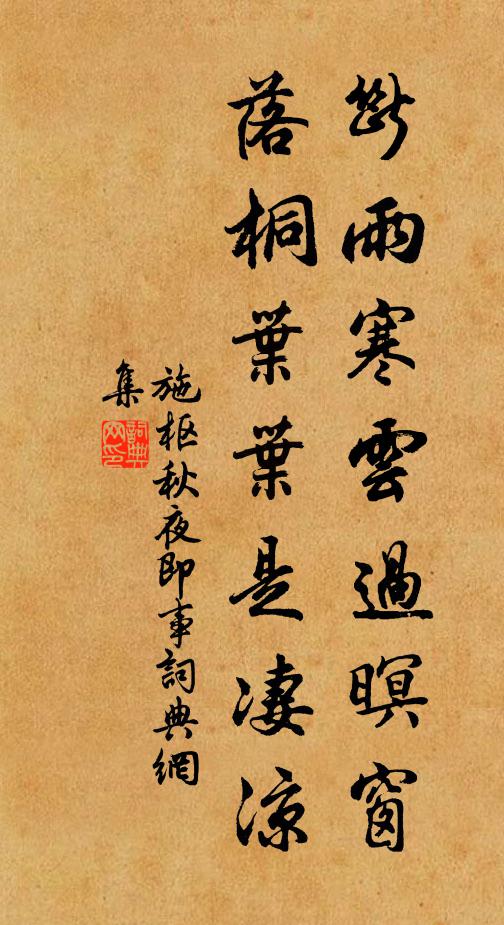 斷雨寒雲過暝窗
落桐葉葉是淒涼
施樞秋夜即事詞典網
集
詞典
网印